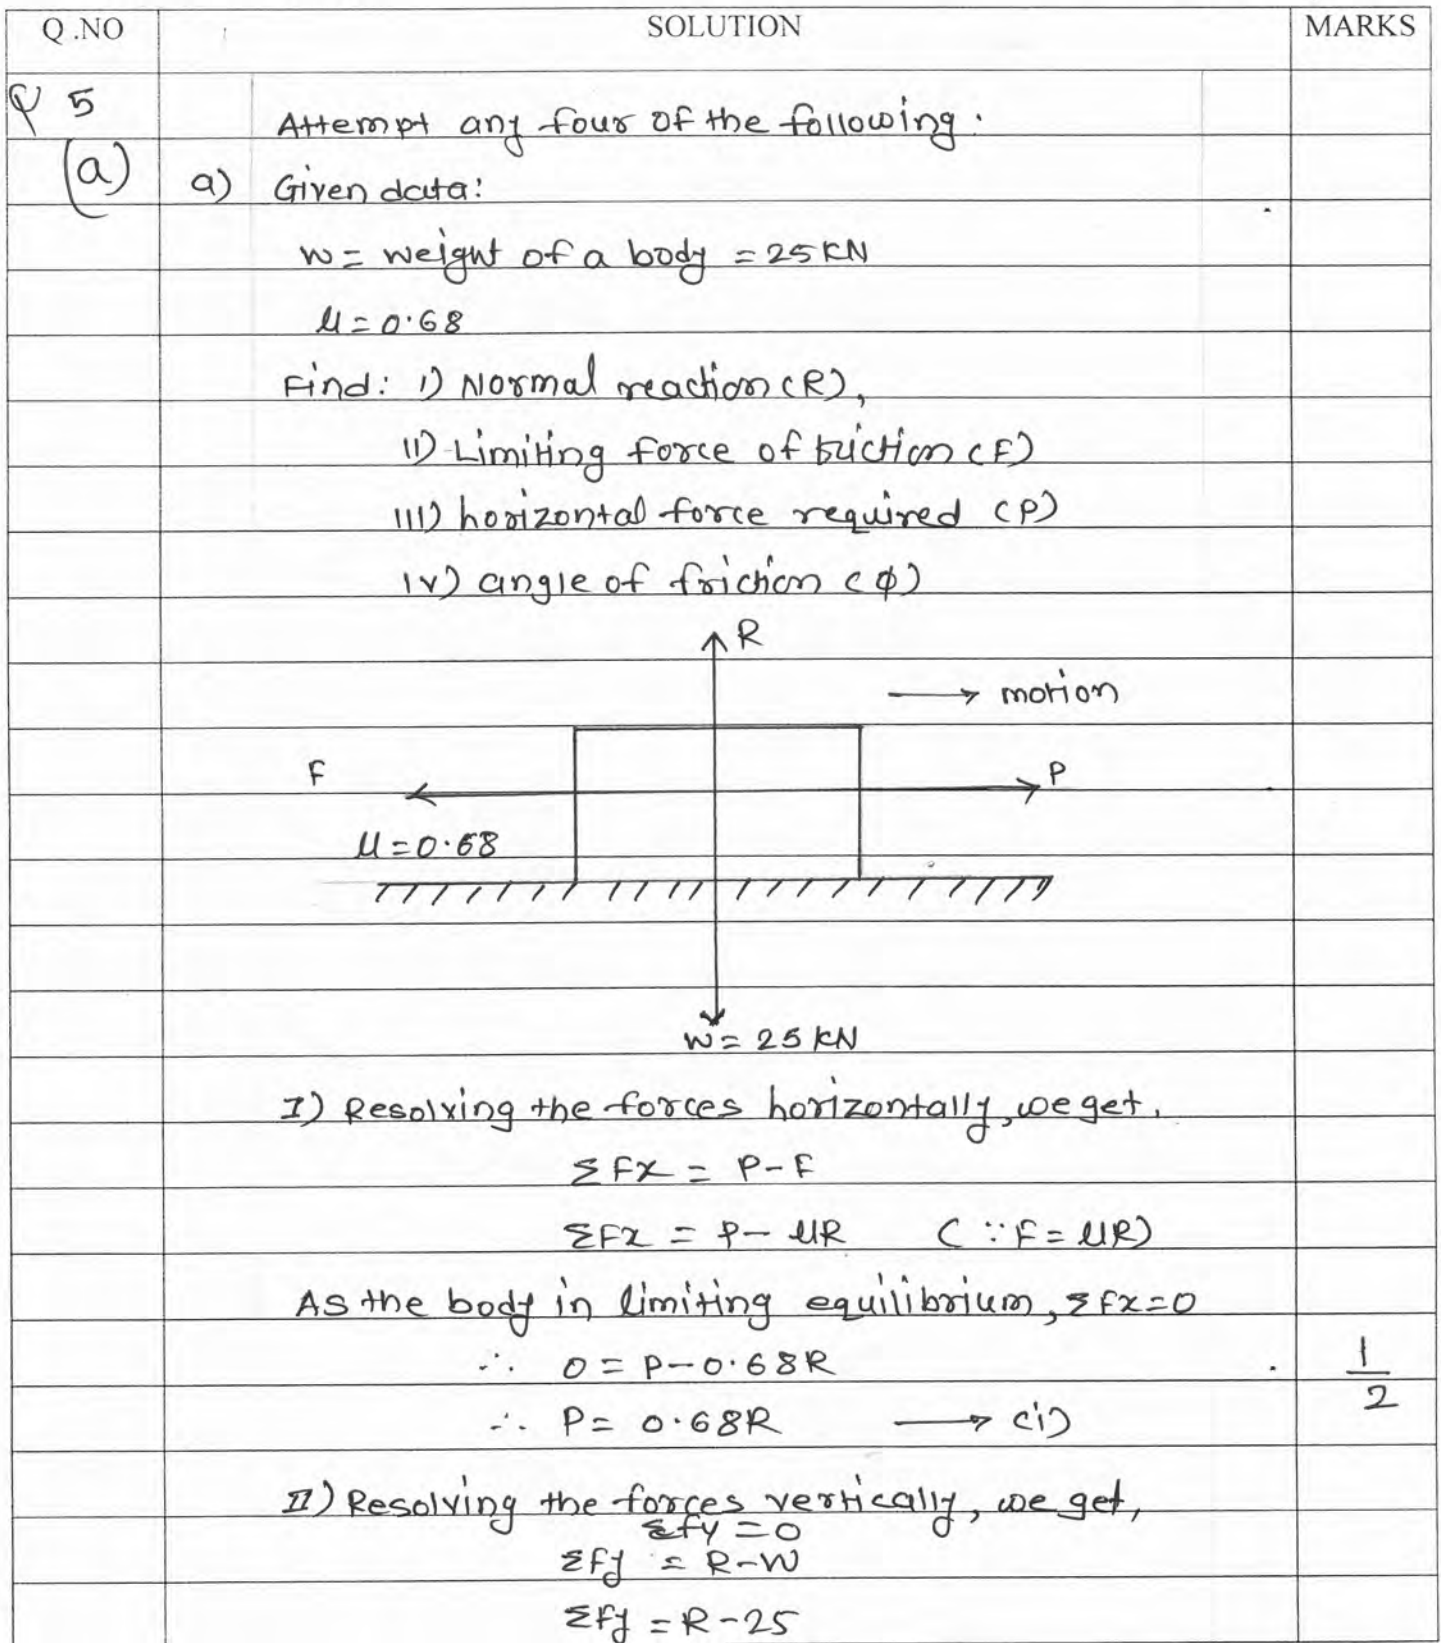 Q .NO SOLUTION MARKS
Q 5 Attempt any four of the following.
(a) a) Given data:
W = weight of a body = 25 KN
μ = 0.68
Find: i) Normal reaction (R),
ii) Limiting force of friction (F)
iii) horizontal force required (P)
iv) angle of friction (φ)
R
→ motion
F P
μ = 0.68
W = 25 KN
I) Resolving the forces horizontally, we get,
ΣFx = P-F
ΣFx = P- μR (∵ F = μR)
As the body in limiting equilibrium, ΣFx=0
∴ 0 = P-0.68R 1/2
∴ P = 0.68R → (i)
II) Resolving the forces vertically, we get,
Σfy = 0
Σfy = R-W
Σfy = R-25